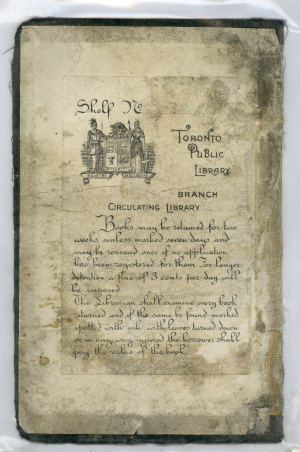 Shelf No
Toronto
Public
Library
Branch
Circulating Library
Books may be retained for two
weeks unless marked seven days and
may be renewed once if no application
has been registered for them. For longer
detention a fine of 3 cents per day will
be imposed
The Librarian shall examine every book
returned and if the same be found marked
spotted with ink with leaves turned down
or in any way injured the borrower shall
pay the value of the book